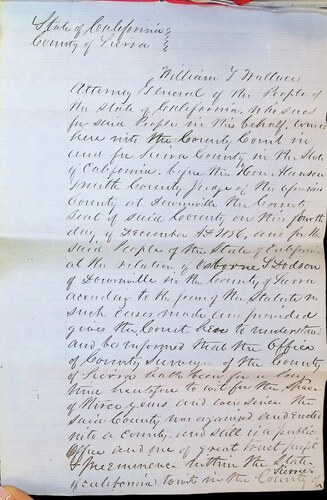 State of California
County of Sierra
William T Wallace
Attorney General of the People of
the State of California. Who sues
for said People in this behalf. comes
here into the County Court in
and for Sierra County in the State
of California. before the Hon. Alanson
Smith County Judge of the aforesaid
County at Downieville the County
Seat of said County on this fourth
day of December AD 1856, and for the
said People of the State of California
at the relation of Osborne T Dodson
of Downieville in the County of Sierra
according to the form of the Statute in
such cases made and provided
gives the Court here to understand
and be informed that the Office
of County Surveyor of the County
of Sierra hath been for a long
time heretofore to wit for the space
of three years and ever since the
said County was organized and erected
into a County, and still is a public
office and one of great trust
& preeminence within the State
of California, to wit in the County of Sierra